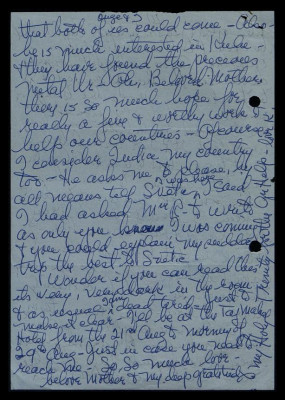 page 3
that both of us could come - Also
he is much interested in
they have found the precious
metal Ur - Oh, Beloved Mother,
there is so much hope for
really a fine & worthy work to
help our countries - Of course
I consider India my country
too - He asked me to please, by
all means tell I said
I had asked Mr P - to write
as only you I was coming
& you could explain my sudden
trip the best to
I Wonder if you can read this
its very, very dark in the room
& as usual I'm dead tired - Just to
make it clear - I'll be at the Taj Mahal
Hotel from the 21st Aug to morning of
29th Aug - Just in case you need to
reach me - So, so much love -
belove Mother & my deep gratitude
my Holy Trinity